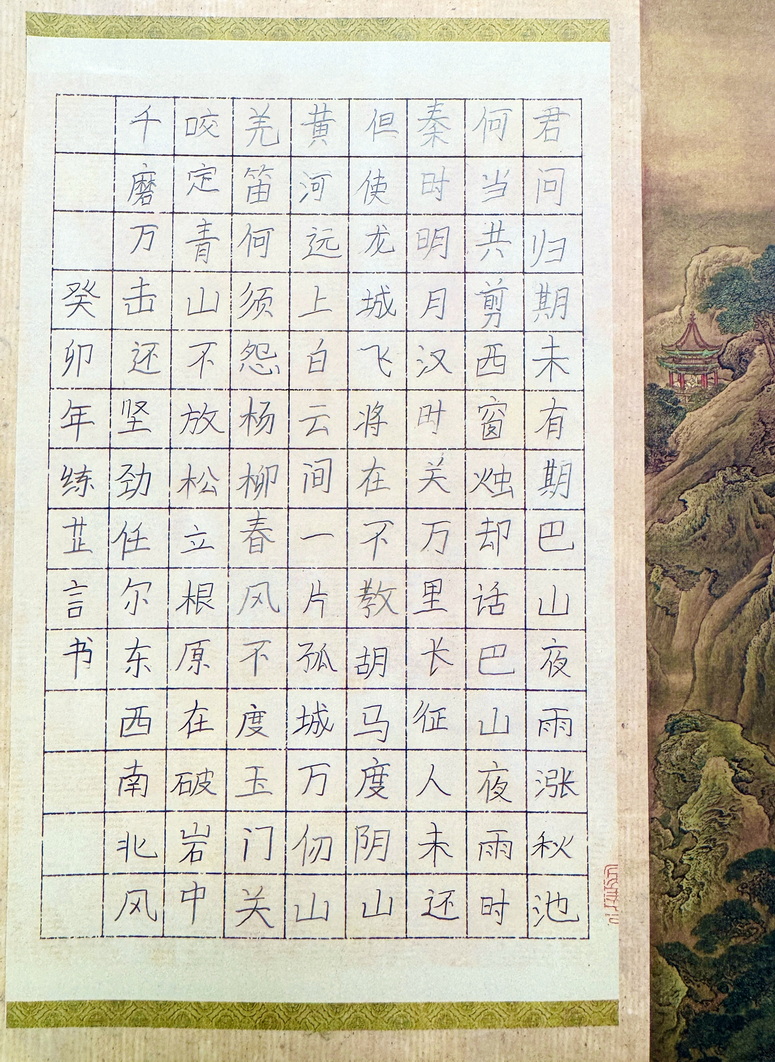 君问归期未有期巴山夜雨涨秋池
何当共剪西窗烛却话巴山夜雨时
秦时明月汉时关万里长征人未还
但使龙城飞将在不教胡马度阴山
黄河远上白云间一片孤城万仞山
羌笛何须怨杨柳春风不度玉门关
咬定青山不放松立根原在破岩中
千磨万击还坚劲任尔东西南北风
癸卯年练芷言书